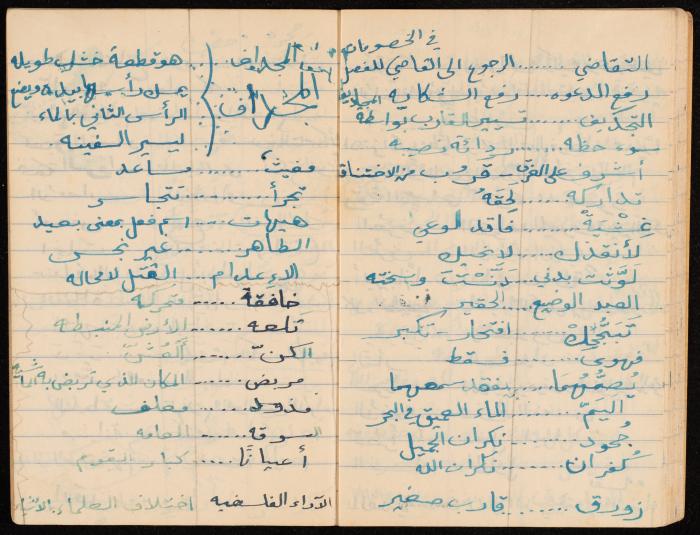 في الخصومات
التقاضي ...... الرجوع الى القاضي للفصل
رفع الدعوه .... رفع الشكايه
التجذيف ...... تسيير القارب بواسطة
سوء حظه ..... رداءة نصيبه
أشرف على الغرق .. قرب من الاختناق
تداركه ...... لَحِقَهُ
غشيةً ...... فاقد الوعي
لأنقذك .... لانجيك
لوَّثت بدني ... دَنَّسْتَ وسخته
العبد الوضيع .... الحقير
تَبَجُّحِكَ ...... افتخار - تكبر
فهوى ...... فسقط
يُصِمُّهُمَا .... يفقد سمعهما
اليَمّ ...... الماء العميق في البحر
جُحود ...... نكران الجميل
كُفران ...... نكران الله
زورق ...... قارب صغير
المجداف .. هو قطعة خشب طويله
المجداف
الرأس الثاني بالماء
ليسير السفينه
مغيث ........ مساعد
تجرأ ......... تتجاسر
هيهات ... اسم فعل بمعنى بعيد
الطاهر ...... غير نجس
الاعدام ... القتل لامحاله
خافقة ...... متحركه
تلعه ...... الأرض المنبسطه
الكنّ ...... العُشّ
مربض ..... المكان الذي تربض به الماشية
مذود ...... معلف
السوقه ..... العامه
أعيانًا ..... كبار القوم
الآراء الفلسفيه اختلاف العلماء